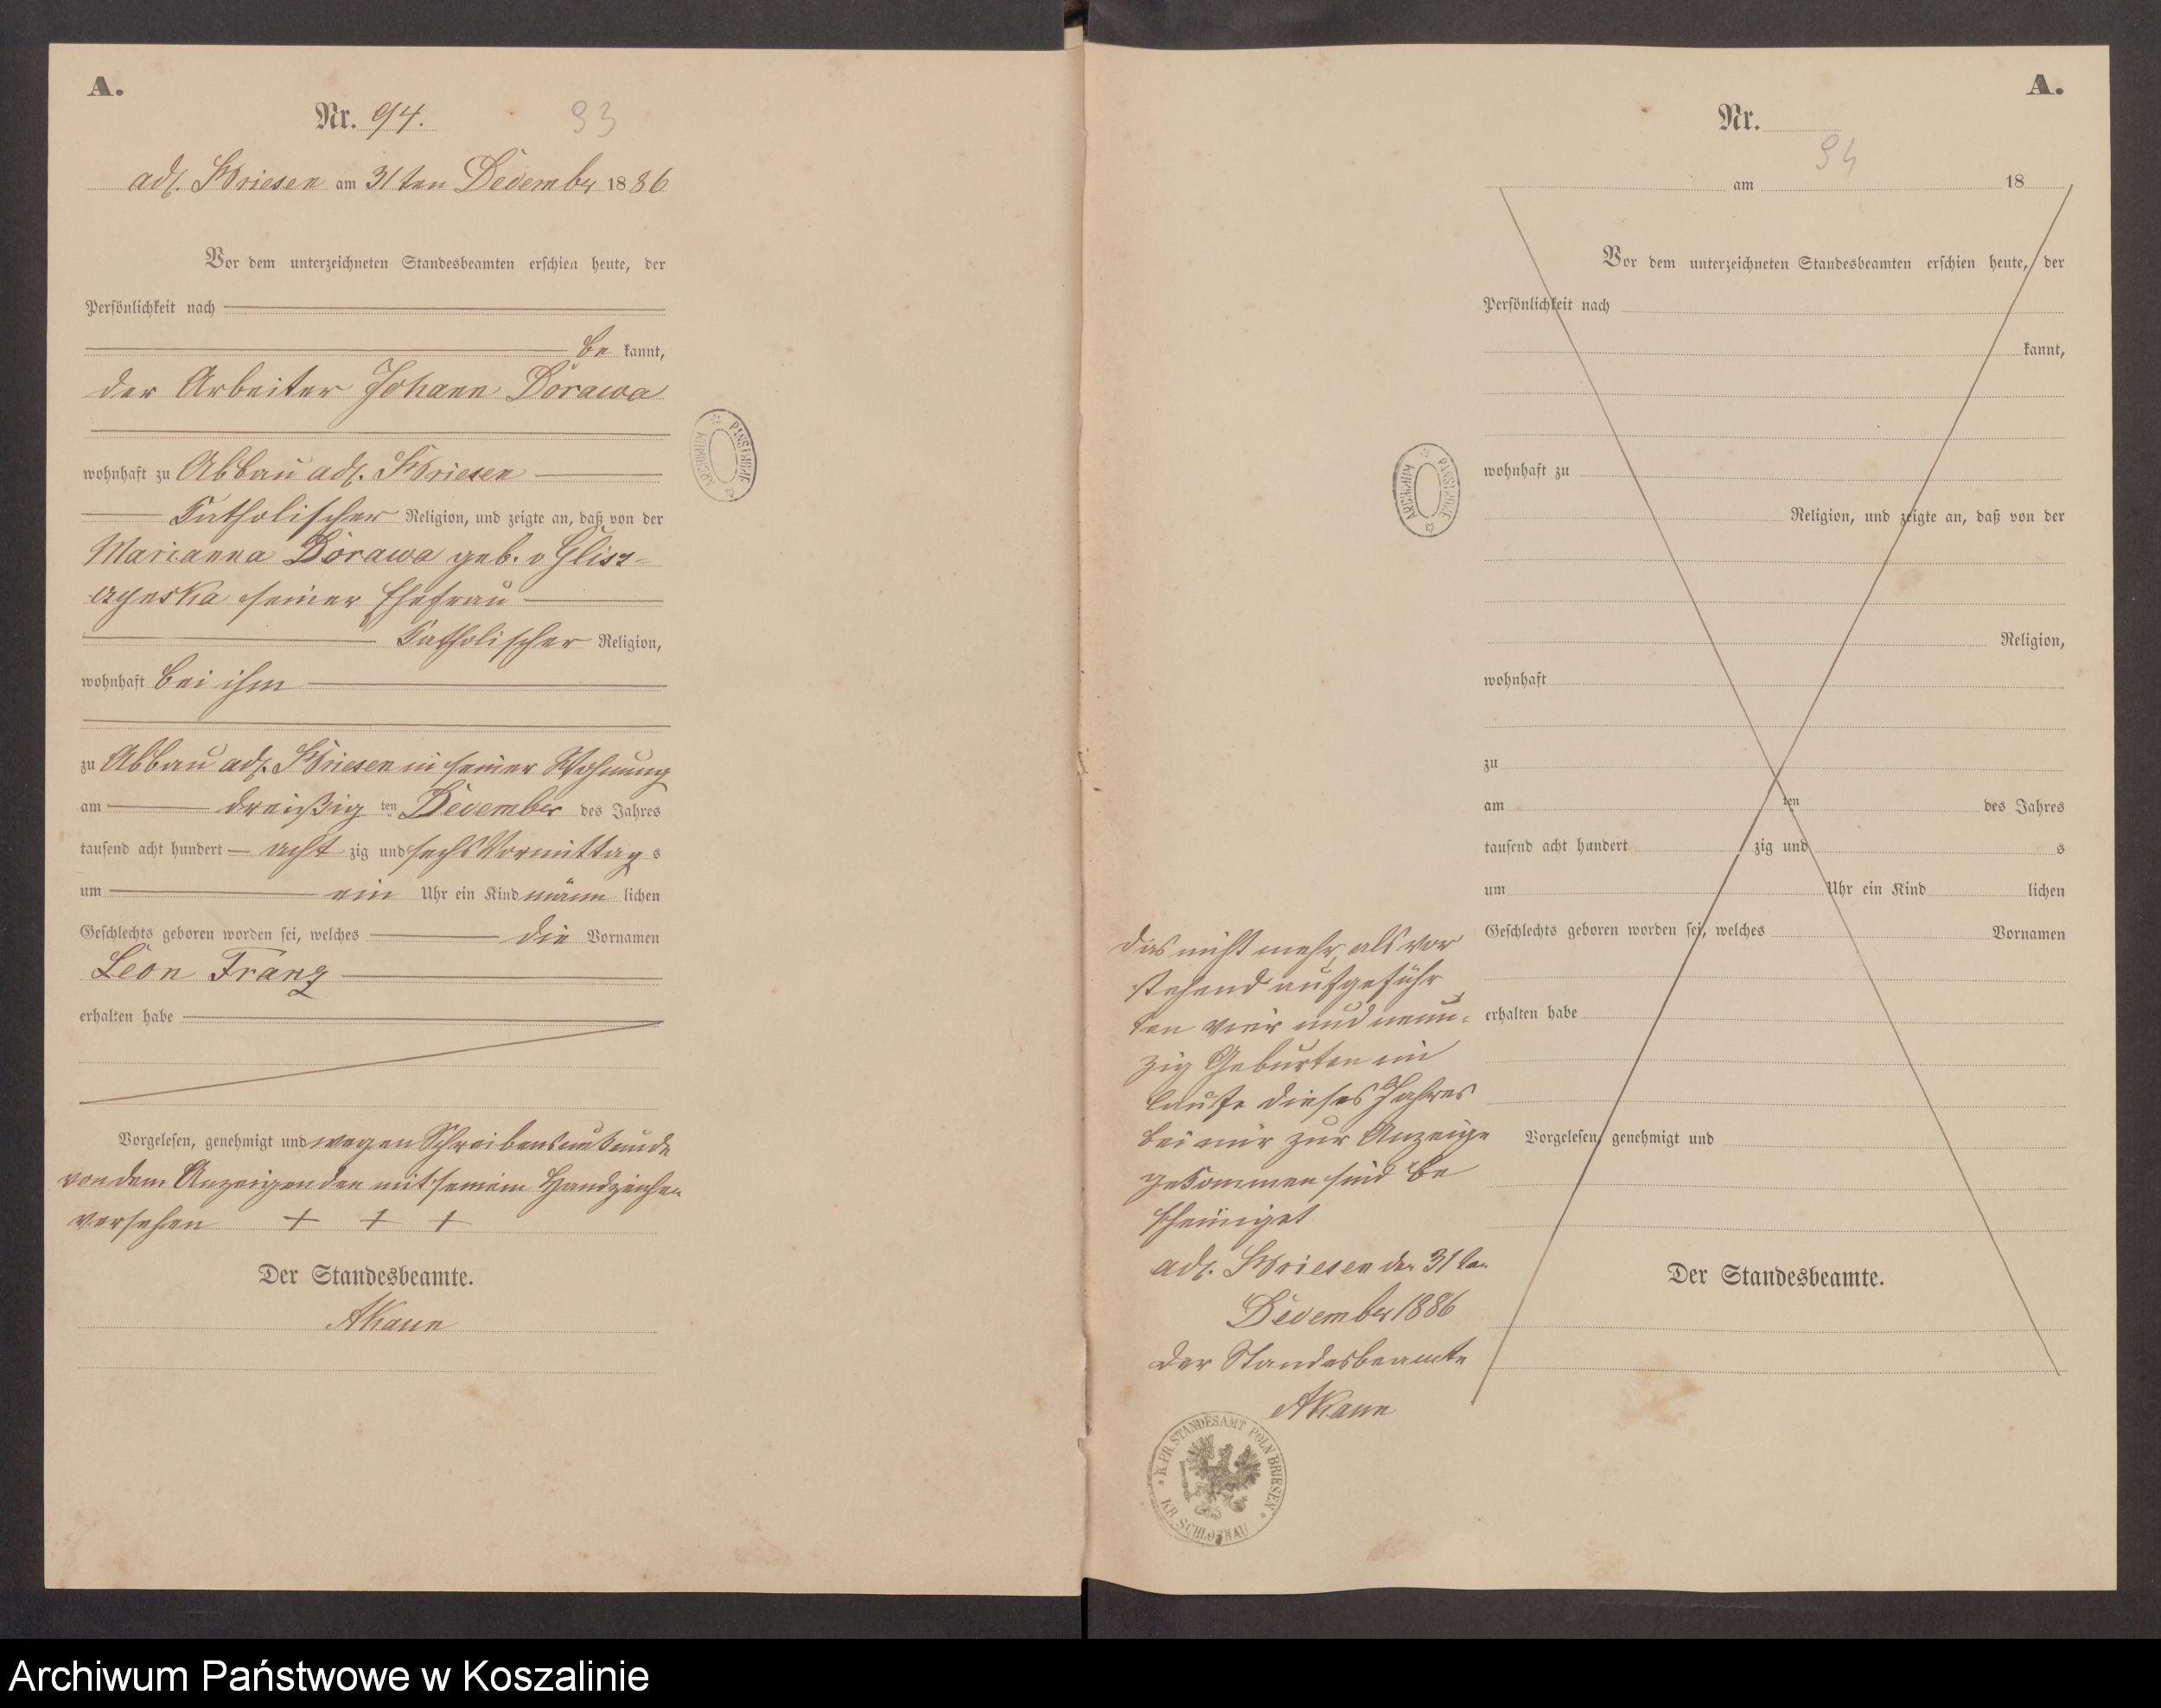 A.
Nr. 94.
93
adl. Briesen am 31ten Dezember 1886
Vor dem unterzeichneten Standesbeamten erschien heute, der
Persönlichkeit nach
be kannt,
der Arbeiter Johann Dorawa
wohnhaft zu Abbau adl. Briesen
Katholischer Religion, und zeigte an, daß von der
Marianna Dorawa geb. v Glisz-
czynska seiner Ehefrau
Katholischer Religion,
wohnhaft bei ihm
zu Abbau adl. Briesen in seiner Wohnung
am dreißig ten Dezember des Jahres
tausend acht hundert acht zig und sechs Vormittag s
um ein Uhr ein Kind männ lichen
Geschlechts geboren worden sei, welches die Vornamen
Leon Franz
erhalten habe
Vorgelesen, genehmigt und wegen Schreibensunkunde
von dem Anzeigenden mit seinem Handzeichen
versehen + + +
Der Standesbeamte.
AKann
ARCHIWUM PAŃSTWOWE
A.
Nr.
94
am 18
Vor dem unterzeichneten Standesbeamten erschien heute, der
Persönlichkeit nach
kannt,
wohnhaft zu
Religion, und zeigte an, daß von der
Religion,
wohnhaft
zu
am ten des Jahres
tausend acht hundert zig und s
um Uhr ein Kind lichen
Geschlechts geboren worden sei, welches Vornamen
erhalten habe
Vorgelesen, genehmigt und
Der Standesbeamte.
ARCHIWUM PAŃSTWOWE
Das nicht mehr, als vor
stehend aufgeführ
ten vier und neun-
zig Geburten im
Laufe dieses Jahres
bei mir zur Anzeige
gekommen sind be
scheiniget
adl. Briesen den 31ten
Dezember 1886
Der Standesbeamte
AKann
K. PR. STANDESAMT POLN BRIESEN
KR. SCHLOCHAU
Archiwum Państwowe w Koszalinie